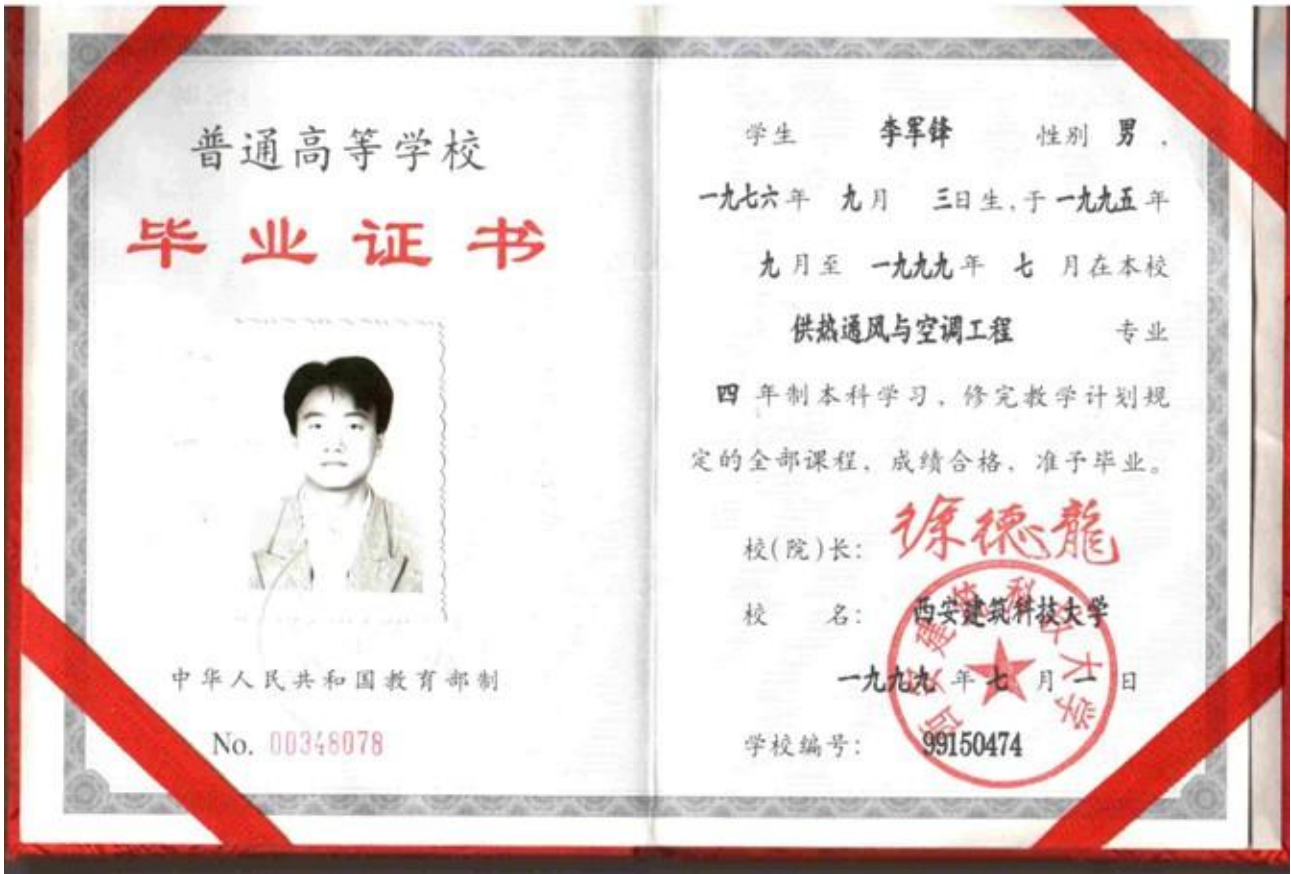 普通高等学校
毕业证书
中华人民共和国教育部制
No. 00348078
学生 李军锋 性别 男，
一九七六年 九月 三日生，于一九九五年
九月至 一九九九年 七 月在本校
供热通风与空调工程 专业
四 年制本科学习，修完教学计划规
定的全部课程，成绩合格，准予毕业。
校(院)长： 徐德龍
校 名： 西安建筑科技大学
一九九九 年 七 月 一 日
学校编号： 99150474
西安建筑科技大学